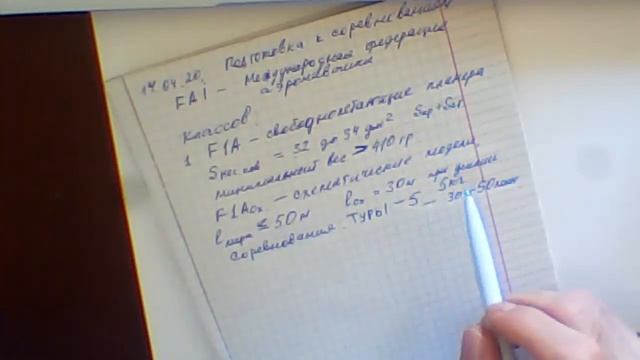 14.04.20. Подготовка к соревнованиям
FAI - Международная федерация
аэронавтики
классов.
1 F1A - свободнолетающие планера
Sнес пов = 32 до 34 дм² Sкр + Sст
минимальный вес > 410 гр
F1A сх - схематические модели.
≤ 50м lсх = 30м при усилии
5кг
соревнования. Туры - 5 - 30 - 50